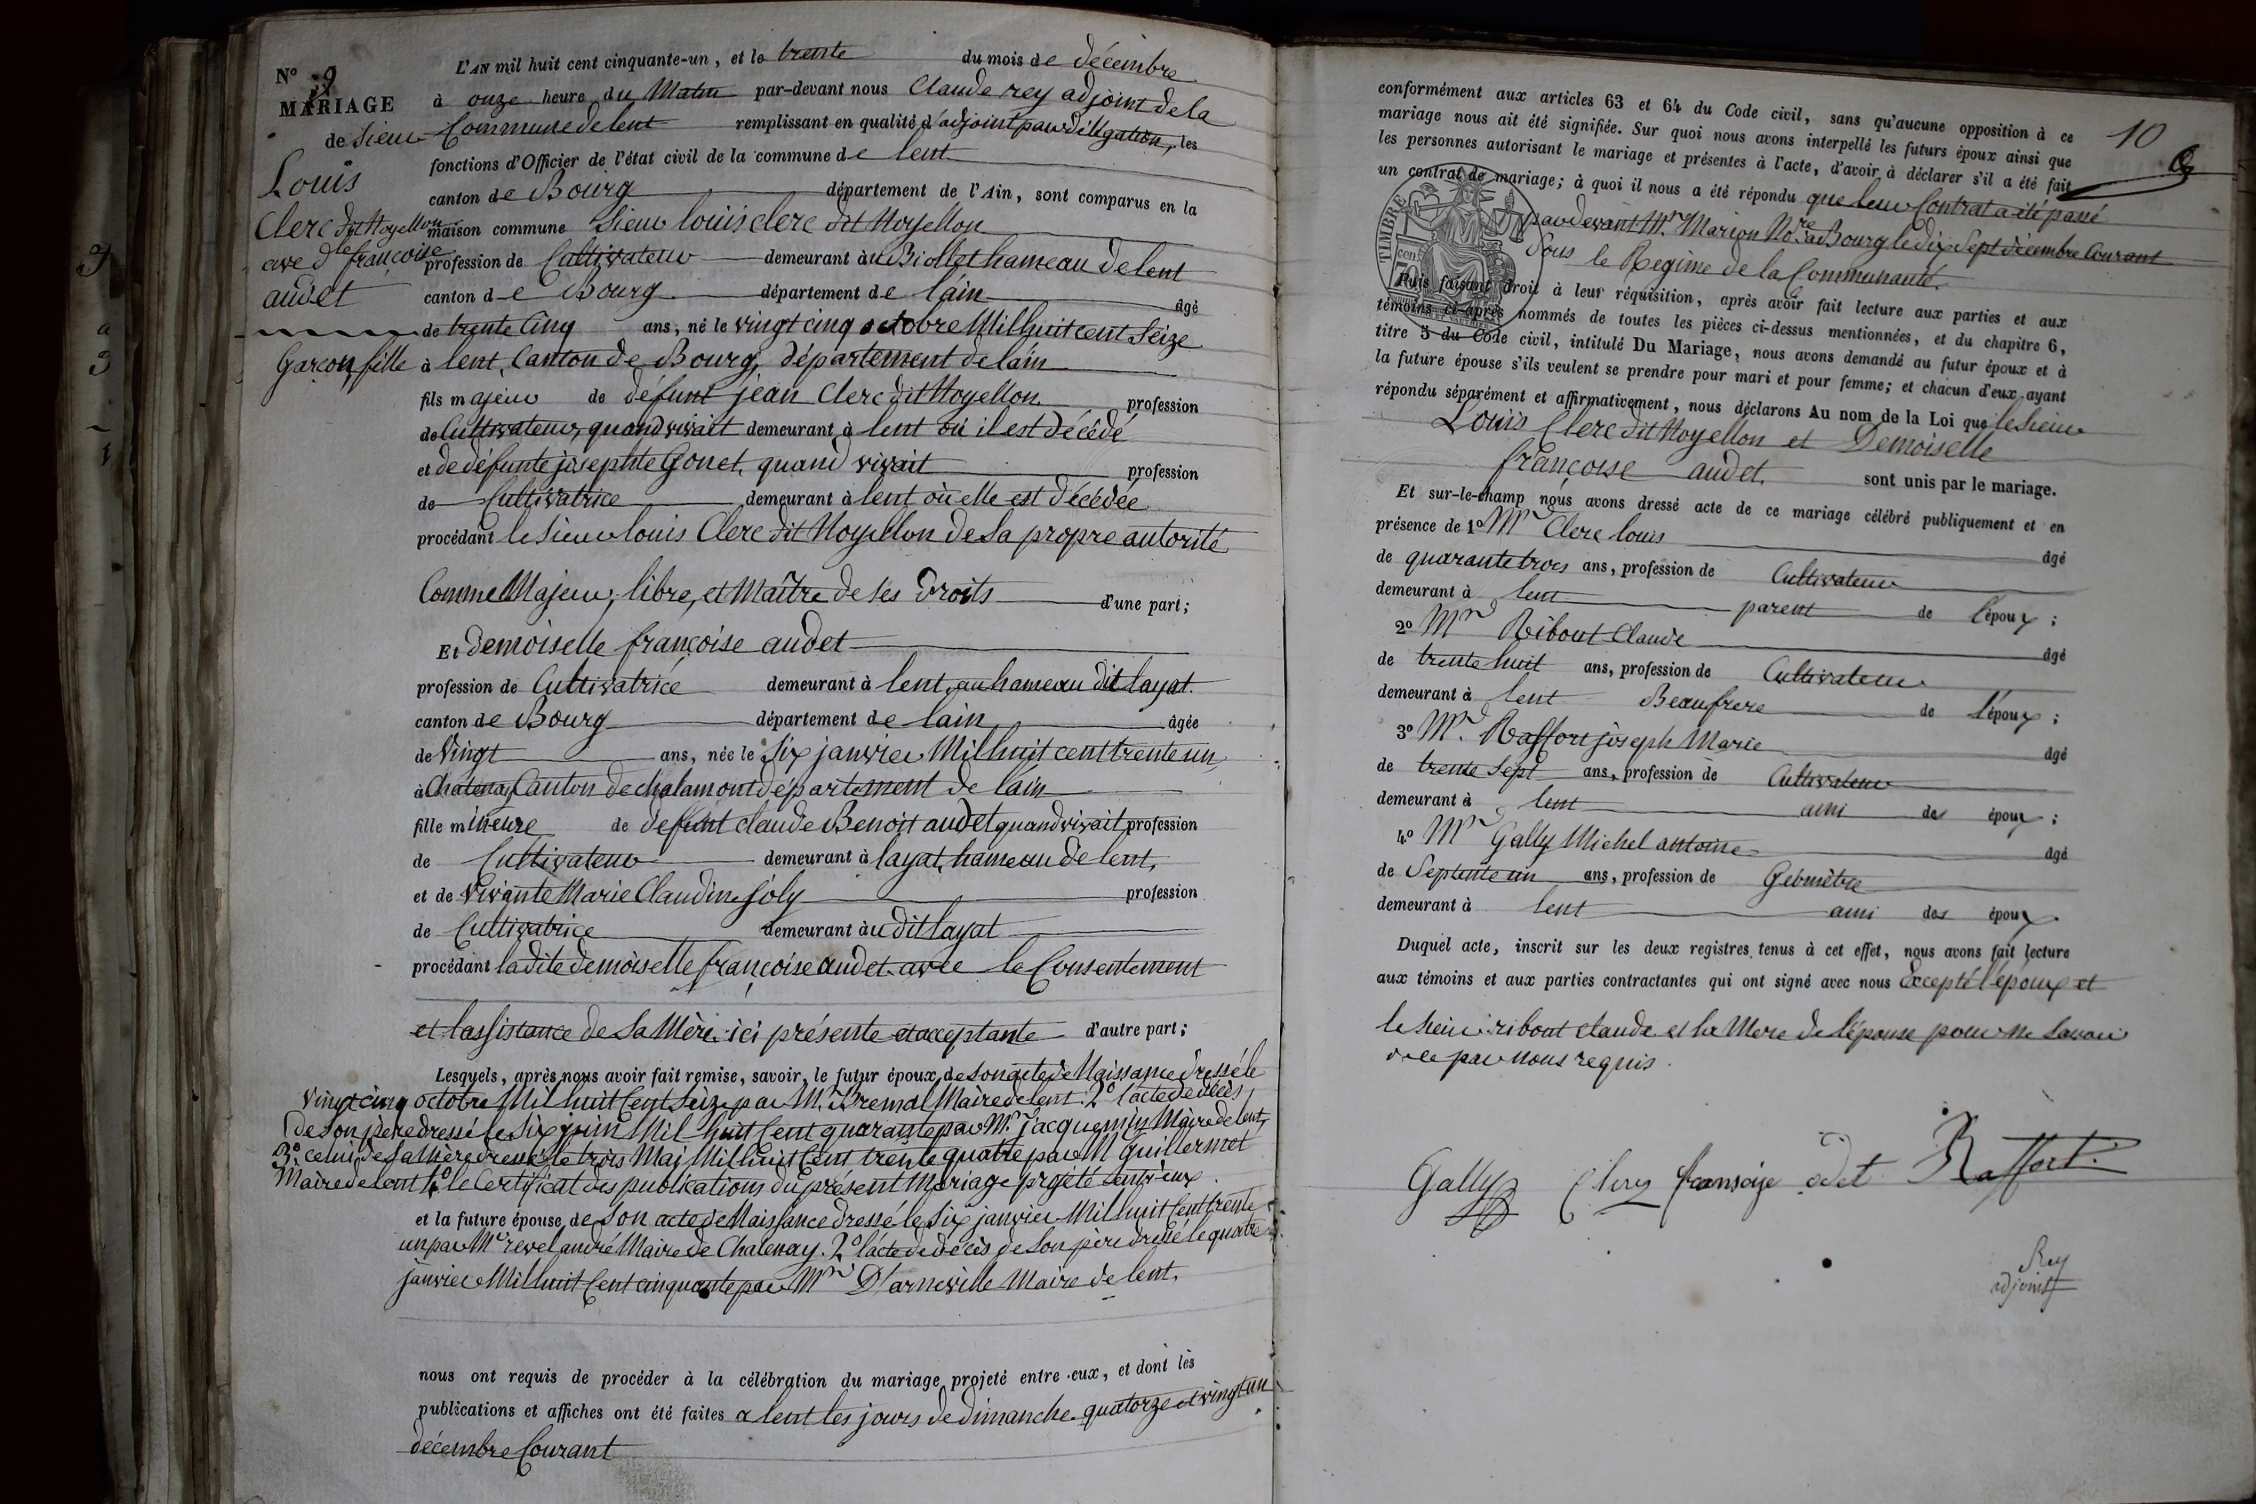 N° 9
MARIAGE
de Sieur
Louis
Clerc dit Noyellon
avec Dlle françoise
audet
Garçon, fille
L'AN mil huit cent cinquante-un, et le trente du mois de décembre
à onze heure du Matin par-devant nous Claude rey adjoint de la
Commune de lent remplissant en qualité d'adjoint par délégation, les
fonctions d'Officier de l'état civil de la commune de lent
canton de Bourg département de l'Ain, sont comparus en la
maison commune Sieur louis clerc dit Noyellon
profession de Cultivateur demeurant au Biollet hameau de lent
canton de Bourg département de lain âgé
de trente Cinq ans, né le vingt cinq octobre Mil huit cent Seize
à lent, Canton de Bourg, département de lain
fils majeur de défunt jean Clerc dit Noyellon profession
de Cultivateur, quand vivait demeurant à lent où il est décédé
et de défunte josephte Gonet, quand vivait profession
de Cultivatrice demeurant à lent où elle est décédée
procédant le Sieur louis Clerc dit Noyellon de Sa propre autorité
Comme Majeur, libre, et Maître de Ses droits d'une part;
Et demoiselle françoise audet
profession de Cultivatrice demeurant à lent, au hameau dit layat.
canton de Bourg département de lain âgée
de Vingt ans, née le Six janvier Mil huit cent trente un,
à Chatenay Canton de chalamont département de lain
fille mineure de defunt claude Benoit audet quand vivait profession
de Cultivateur demeurant à layat, hameau de lent,
et de vivante Marie Claudine joly profession
de Cultivatrice demeurant au dit layat
procédant ladite demoiselle françoise audet avec le Consentement
et lassistance de Sa Mère ici présente et acceptante d'autre part;
Lesquels, après nous avoir fait remise, savoir, le futur époux de son acte de Naissance dressé le
Vingt cinq octobre Mil huit Cent Seize par M. Bremal Maire de lent. 2° l'acte de décès
de son père dressé le Six juin Mil huit Cent quarante par Mr. jacquemin Maire de lent,
3° celui de Sa Mère dressé le trois Mai Mil huit Cent trente quatre par M Guillermet
Maire de lent 4° le Certificat des publications du présent Mariage projété entr'eux.
et la future épouse de Son acte de Naissance dressé le Six janvier Mil huit Cent trente
un par Mr revel andré Maire de Chatenay. 2° l'acte de décès de Son père dressé le quatre
janvier Mil huit Cent cinquante par Mr D'arneville Maire de lent.
nous ont requis de procéder à la célébration du mariage projeté entre eux, et dont les
publications et affiches ont été faites a lent les jours de dimanche quatorze et vingt un
décembre Courant
10
conformément aux articles 63 et 64 du Code civil, sans qu'aucune opposition à ce
mariage nous ait été signifiée. Sur quoi nous avons interpellé les futurs époux ainsi que
les personnes autorisant le mariage et présentes à l'acte, d'avoir à déclarer s'il a été fait
un contrat de mariage; à quoi il nous a été répondu que leur Contrat a été passé
par devant Mr. Marion Nore. a Bourg le dix Sept décembre Courant
Sous le Regime de la Communauté.
TIMBRE
Puis faisant droit à leur réquisition, après avoir fait lecture aux parties et aux
témoins ci-après nommés de toutes les pièces ci-dessus mentionnées, et du chapitre 6,
titre 5 du Code civil, intitulé Du Mariage, nous avons demandé au futur époux et à
la future épouse s'ils veulent se prendre pour mari et pour femme; et chacun d'eux ayant
répondu séparément et affirmativement, nous déclarons Au nom de la Loi que le Sieur
Louis Clerc dit Noyellon et Demoiselle
françoise audet. sont unis par le mariage.
Et sur-le-champ nous avons dressé acte de ce mariage célébré publiquement et en
présence de 1° Mr Clerc louis âgé
de quarante trois ans, profession de Cultivateur
demeurant à lent parent de l'époux;
2° Mr Ribout Claude âgé
de trente huit ans, profession de Cultivateur
demeurant à lent Beaufrere de l'époux;
3° Mr. Raffort joseph Marie âgé
de trente Sept ans, profession de Cultivateur
demeurant à lent ami des époux;
4° Mr Gally Michel antoine âgé
de Septente un ans, profession de Géomètre
demeurant à lent ami des époux
Duquel acte, inscrit sur les deux registres tenus à cet effet, nous avons fait lecture
aux témoins et aux parties contractantes qui ont signé avec nous Excepté l'époux et
le Sieur ribout claude et la Mere de l'épouse pour ne Savoir
de ce par nous requis.
Gally Clerc fransoize odet Raffort.
Rey
adjoint